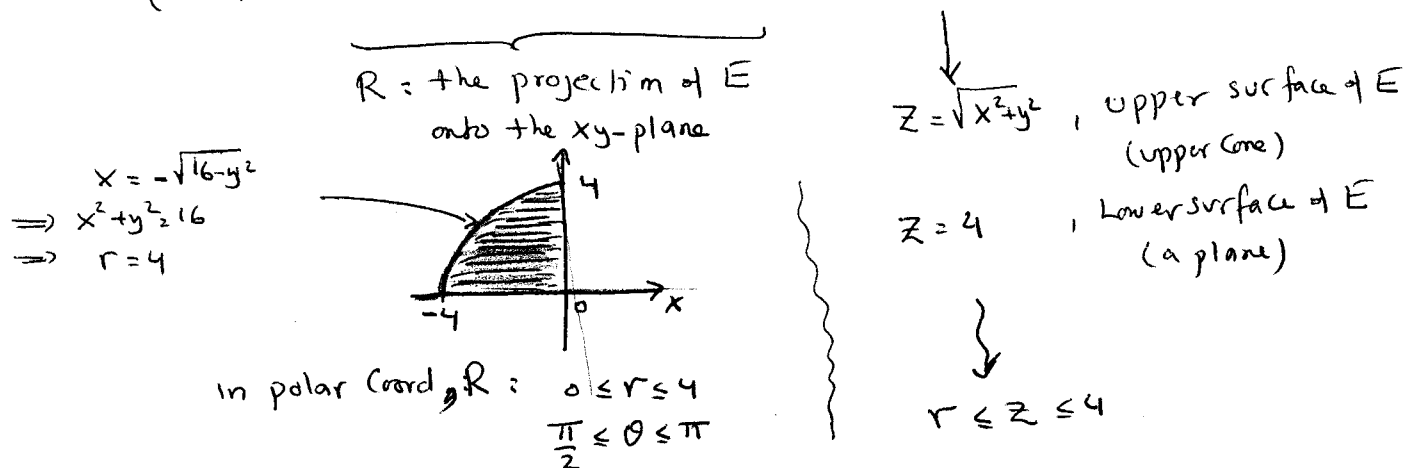 R : the projection of E
onto the xy-plane
x = -√(16-y²)
⇒ x²+y² = 16
⇒ r = 4
4
-4
0
x
in polar Coord, R : 0 ≤ r ≤ 4
π/2 ≤ θ ≤ π
z = √(x²+y²) , upper surface of E
(upper Cone)
z = 4 , Lower surface of E
(a plane)
r ≤ z ≤ 4